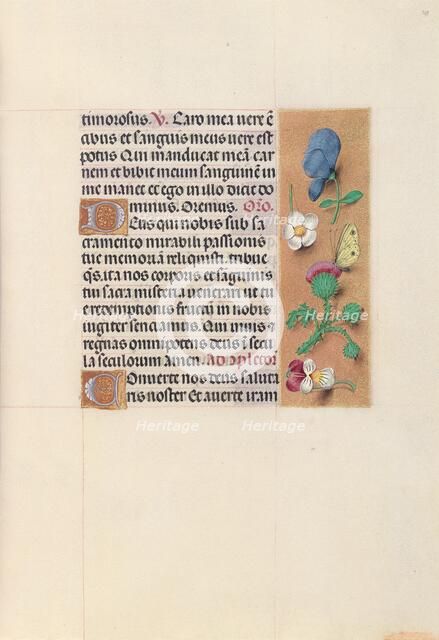 timorosus. V. Caro mea vere ē
cibus et sanguis meus vere est
potus Qui manducat meā car
nem et bibit meum sanguinē in
me manet et ego in illo dicit do
minus. Oremus. Oro.
Deus qui nobis sub sa
cramento mirabili passionis
tue memoriā reliquisti tribue
q̄s. ita nos corporis et sāguinis
tui sacra misteria venerari ut tu
e redemptionis fructū in nobis
iugiter senciamus. Qui viuis et
regnas omnipotens deus in secu
la seculorum amen. Ad cōpletori
Conuerte nos deus saluta
ris noster Et auerte iram
Heritage
Heritage
Heritage
Heritage
Heritage
Heritage